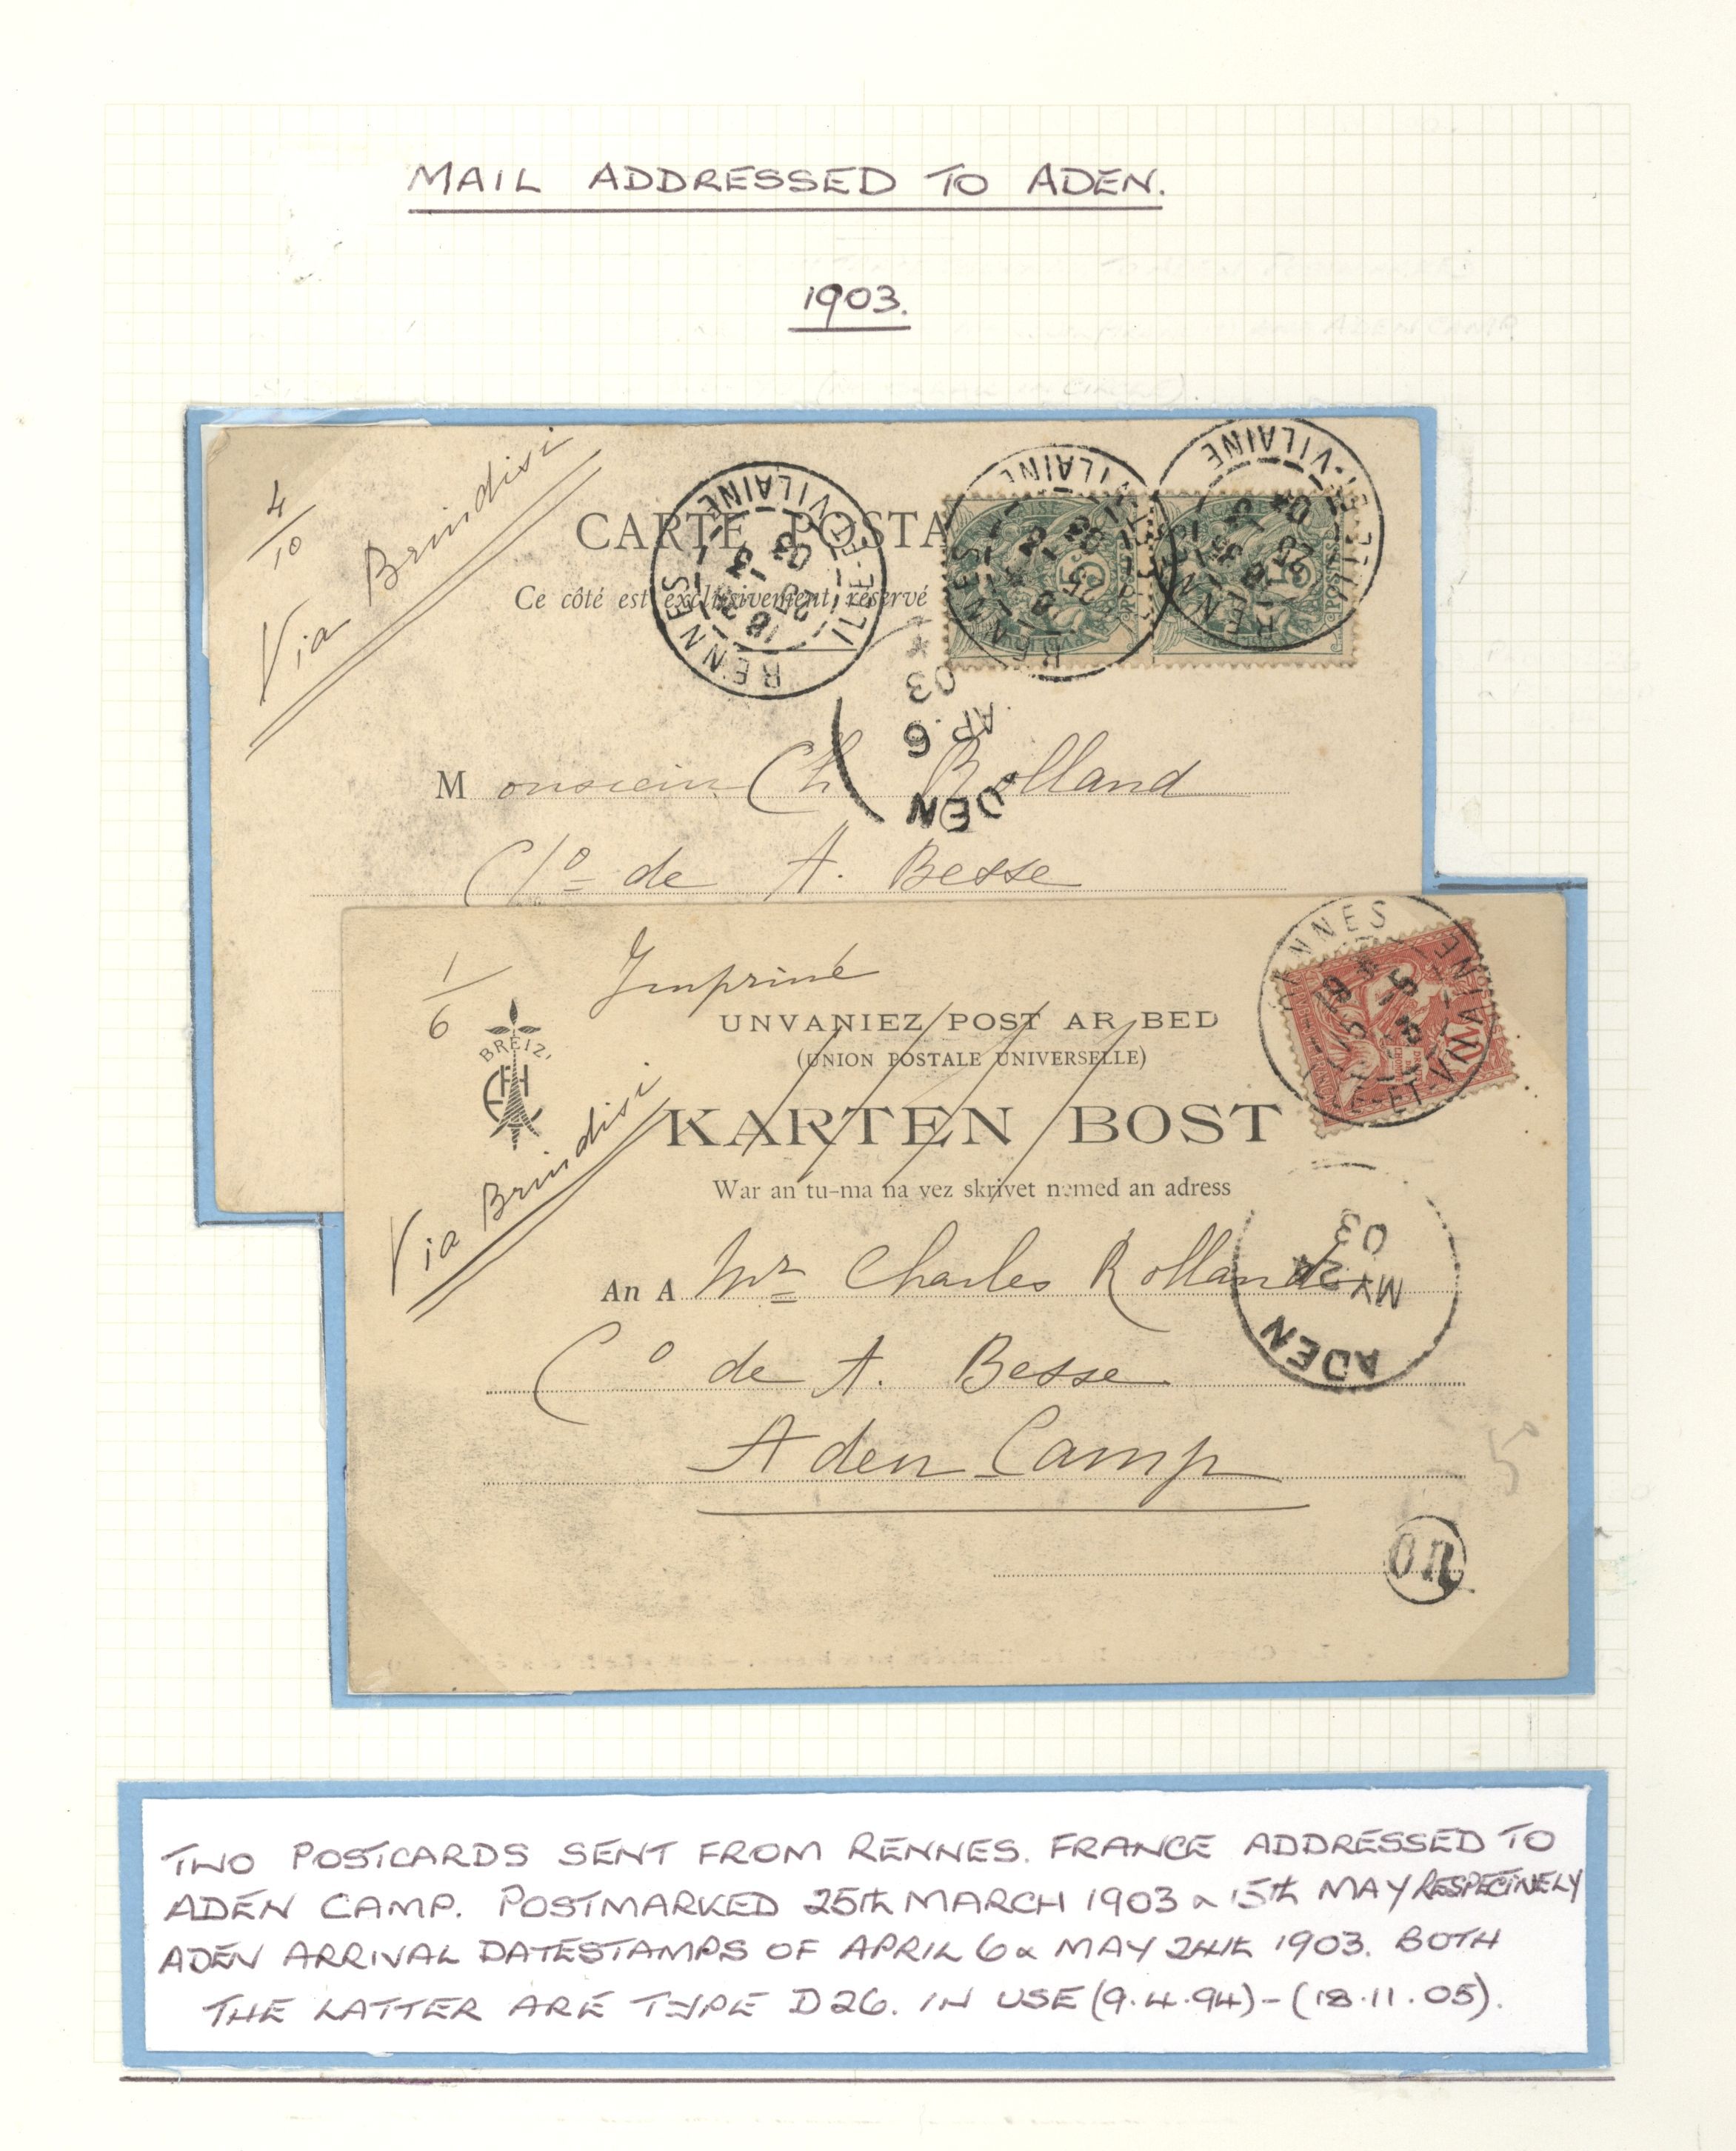 MAIL ADDRESSED TO ADEN.
1903.
4/10
Via Brindisi
CARTE POSTA
Ce côté est exclusivement réservé
RENNES
ILLE-ET-VILAINE
25
3
03
RENNES
VILAINE
25
RENNES
ILLE-ET-VILAINE
25
3
03
5
5
POSTES
ADEN
AP. 6
03
Monsieur Ch Rolland
C/o de A. Besse
1/6
Imprimé
BREIZ
UNVANIEZ POST AR BED
(UNION POSTALE UNIVERSELLE)
KARTEN BOST
War an tu-ma na vez skrivet nemed an adress
Via Brindisi
RENNES
ILLE-ET-VILAINE
15
5
03
10
An A Mr Charles Rolland
Co de A. Besse
Aden Camp
ADEN
MY 24
03
5
OR
TWO POSTCARDS SENT FROM RENNES. FRANCE ADDRESSED TO
ADEN CAMP. POSTMARKED 25th MARCH 1903 & 15th MAY RESPECTIVELY
ADEN ARRIVAL DATESTAMPS OF APRIL 6 & MAY 24th 1903. BOTH
THE LATTER ARE TYPE D26. IN USE (9.4.94)-(18.11.05).